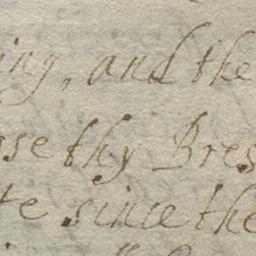 ing, and the
ose thy Bres
te since the